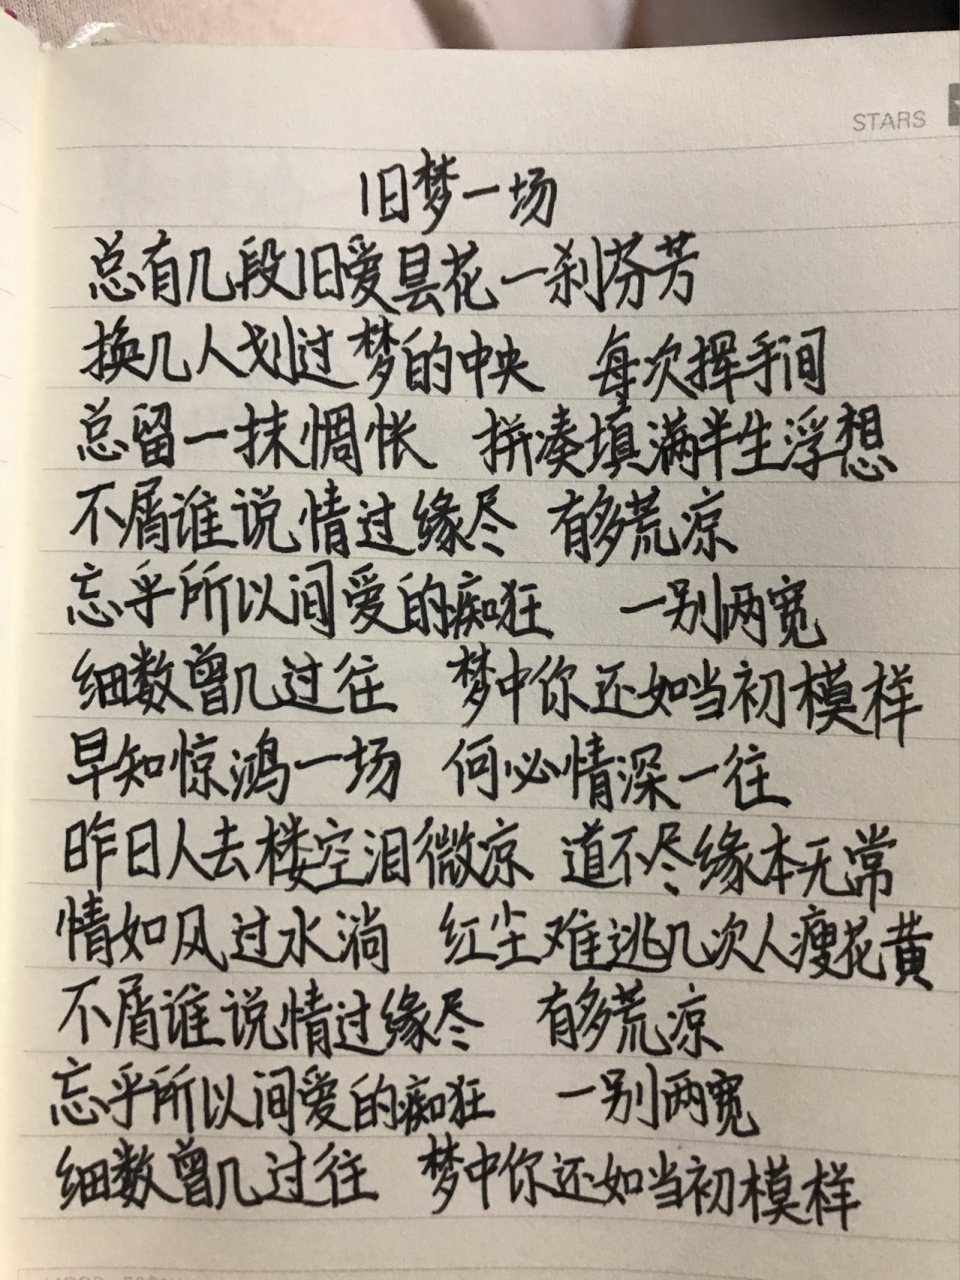 STARS
旧梦一场
总有几段旧爱昙花一刹芬芳
换几人划过梦的中央 每次挥手间
总留一抹惆怅 拼凑填满半生浮想
不屑谁说情过缘尽 有多荒凉
忘乎所以间爱的痴狂 一别两宽
细数曾几过往 梦中你还如当初模样
早知惊鸿一场 何必情深一往
昨日人去楼空泪微凉 道不尽缘本无常
情如风过水淌 红尘难逃几次人瘦花黄
不屑谁说情过缘尽 有多荒凉
忘乎所以间爱的痴狂 一别两宽
细数曾几过往 梦中你还如当初模样